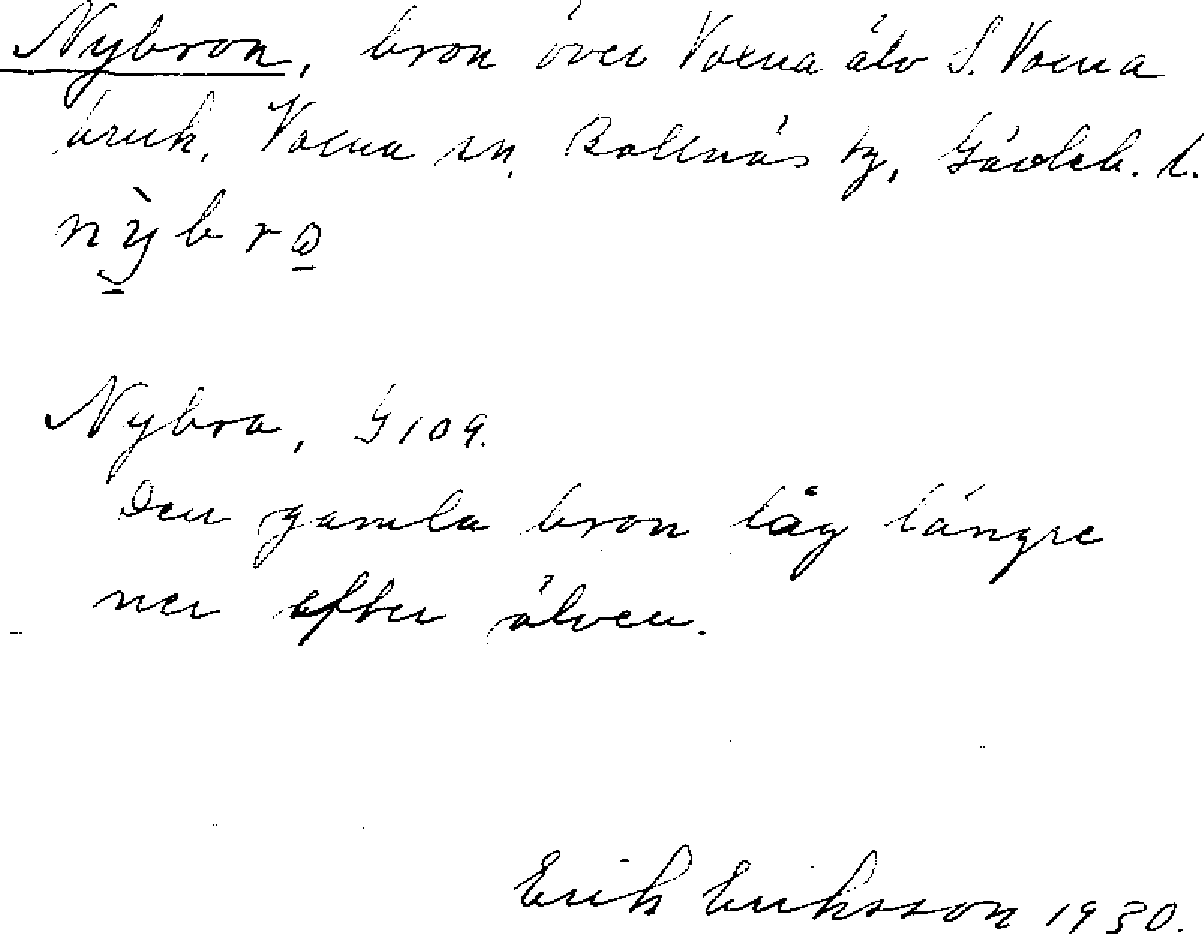 Nybron, bron över Voxna älv S. Voxna
bruk, Voxna sn, Bollnäs tg, Gävleb. l.
nỳbro
Nybro, G 109.
Den gamla bron låg längre
ner efter älven.
Erik Eriksson 1930.